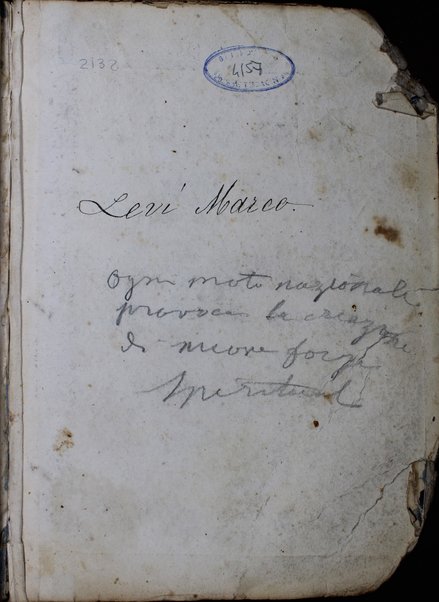 2132
4157
Levi Marco.
ogni moto nazionale
provoca la creazione
di nuove forze
spirituali